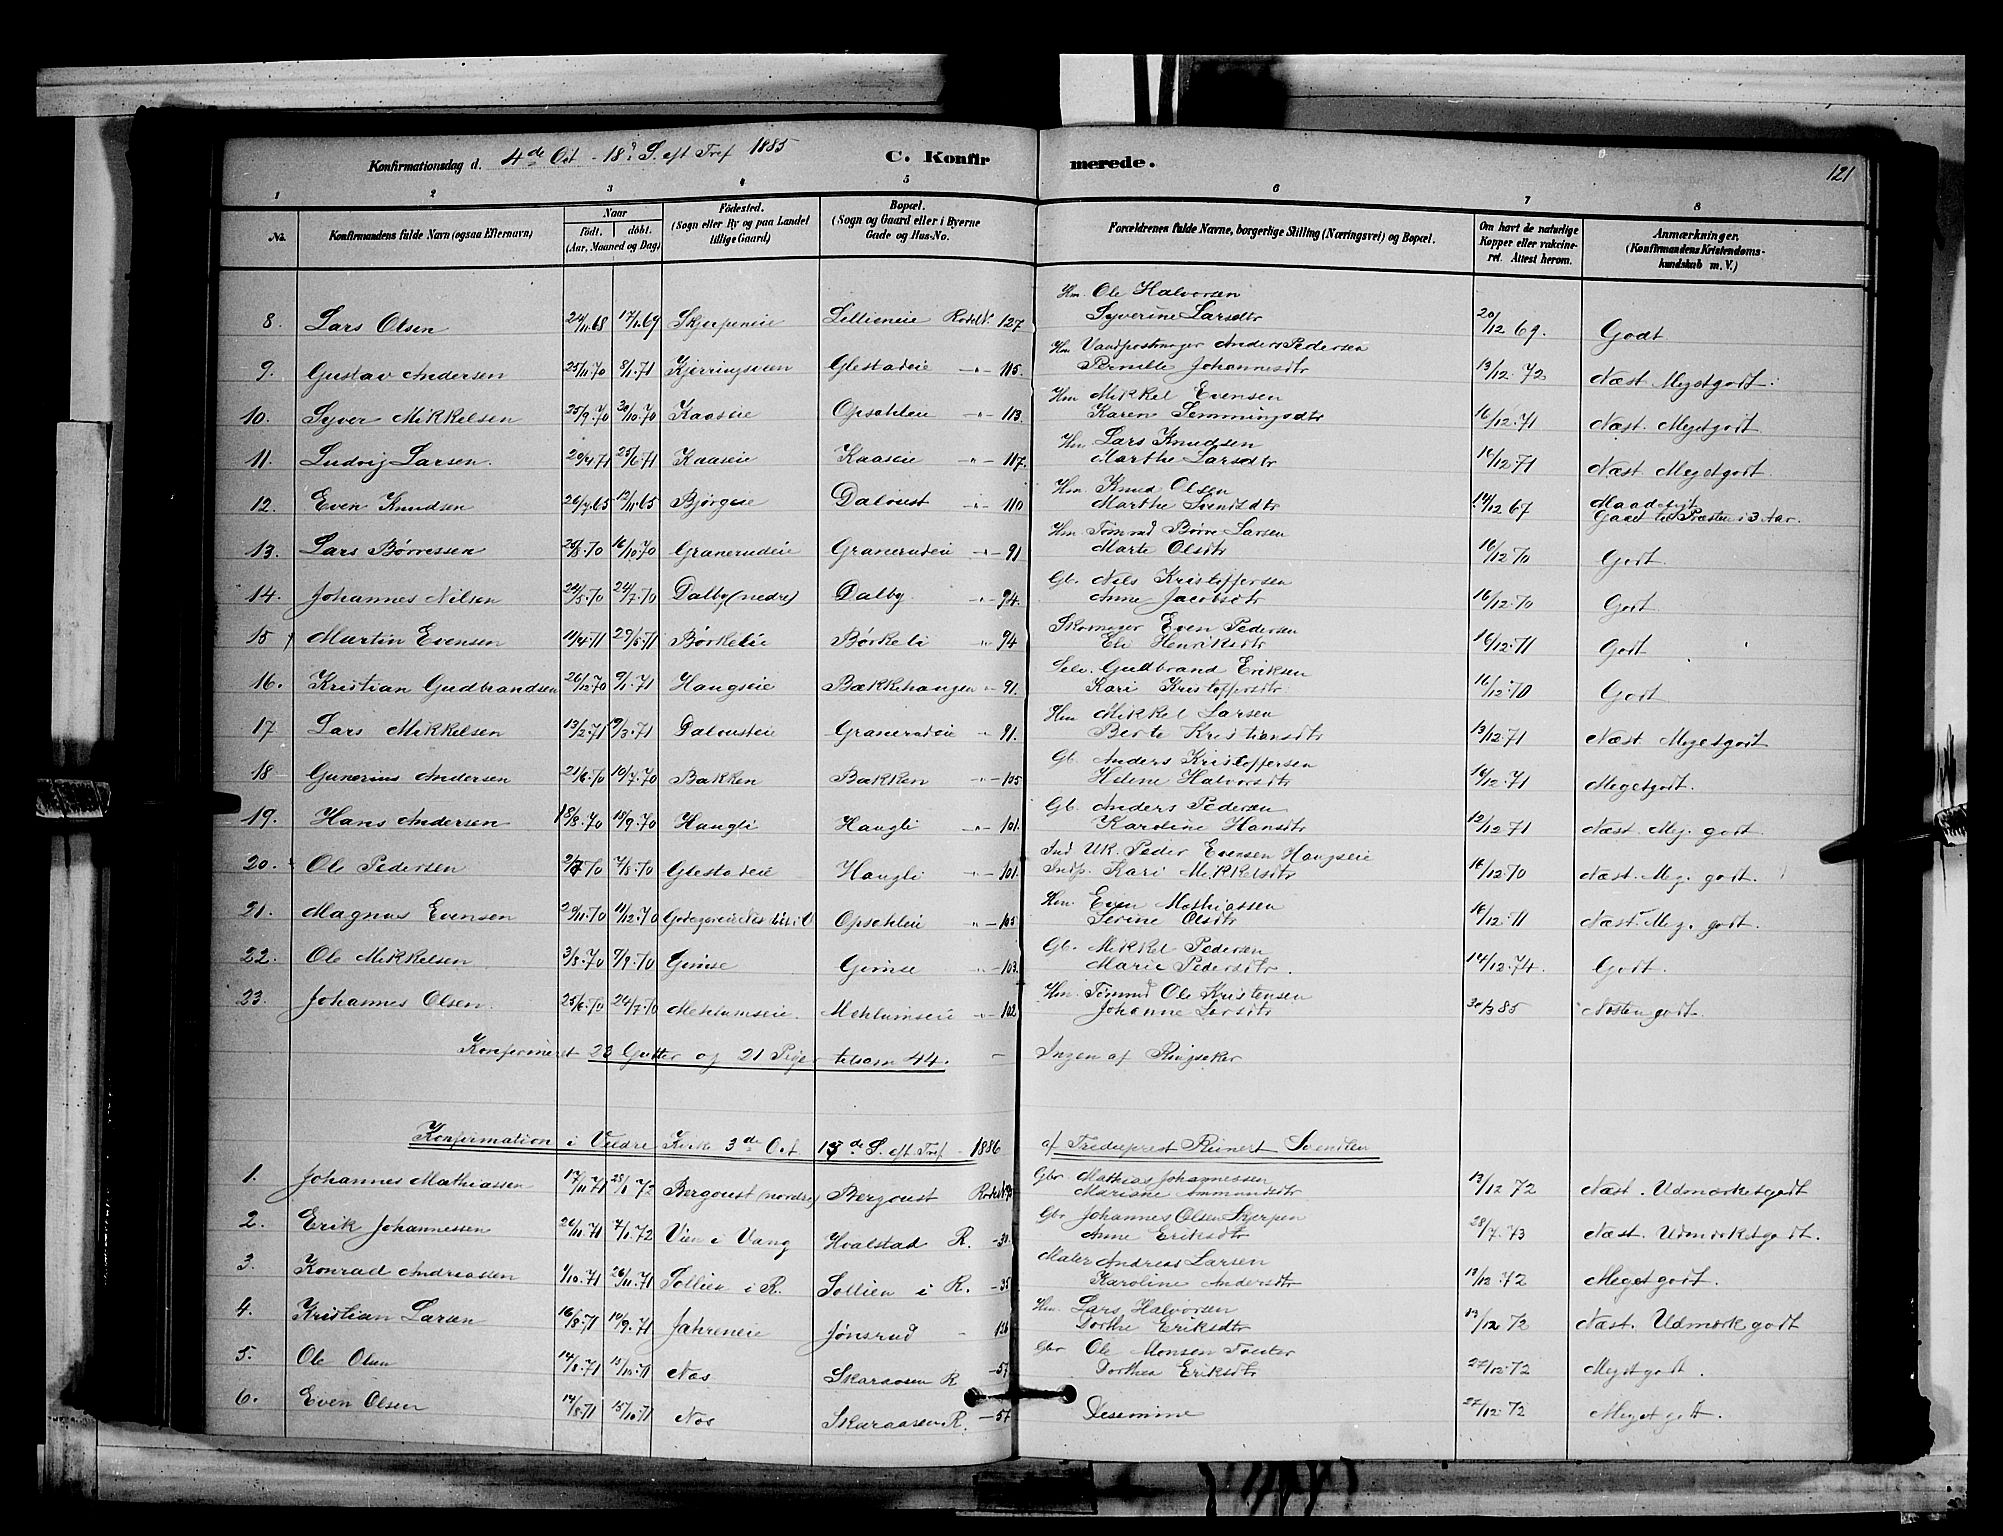 Konfirmationsdag d. 4de Oct - 18d S. eft Tref 1885 C. Konfirmerede. 121
1 2 3 4 5 6 7 8
No. Konfirmandens fulde Navn (ogsaa Efternavn) Naar født. døbt. (Aar, Maaned og Dag) Fødested. (Sogn eller By og paa Landet tillige Gaard) Bopæl. (Sogn og Gaard eller i Byerne Gade og Hus-No. Forældrenes fulde Navne, borgerlige Stilling (Næringsvei) og Bopæl. Om havt de naturlige Kopper eller vakcineret. Attest herom. Anmærkninger. (Konfirmandens Kristendomskundskab m. V.)
8. Lars Olsen 24/11.68 17/1.69 Skjerpeneie Lillieneie 127 Hm. Ole Halvorsen Syverine Larsdtr 20/12 69. Godt
9. Gustav Andersen 25/11.70 8/1.71 Kjerringsveen Glestadeie -"- 115. Hm Vandpostmager Anders Pedersen Pernille Johannesdtr 13/12.72 Næst Megetgodt.
10. Syver Mikkelsen 25/9.70 30/10.70 Kaaseie Opsahleie -"- 113. Hm Mikkel Evensen Karen Semmingsdtr 16/12.71 Næst. Megetgodt
11. Ludvig Larsen. 20/4 71 25/6.71 Kaaseie Kaaseie "- 117. Hm. Lars Knudsen Marthe Larsdtr 16/12.71 Næst Megetgodt
12. Even Knudsen 26/7.65 12/11.65 Bjørgeie Daloust -"- 110 Hm. Knud Olsen Marthe Svendsdtr 14/12 67 Maadeligt Gaaet til Præsten i 3 Aar.
13. Lars Børresen 28/8.70 16/10.70 Granerudeie Granerudeie -"- 91 Hm Tømmd Børre Larsen Marte Olsdtr 16/12.70 Godt
14. Johannes Nilsen 24/5.70 24/7.70 Dalby (nedre) Dalby -"- 94. Gb. Nils Kristoffersen Anne Jacobsdtr 16/12.70 Godt
15 Martin Evensen 11/4.71 29/5.71 Børkelie Børkeli "- 94 Skomager Even Pedersen Eli Henriksdtr 16/12.71 Godt
16. Kristian Gudbrandsen 26/12.70 9/1.71 Haugseie Bækkehaugen - 91. Selv. Gudbrand Eriksen Kari Kristoffersdtr 16/12.70 Godt
17 Lars Mikkelsen 13/2.71 19/3.71 Dalousteie Granerudeie - 91. Hm Mikkel Larsen Berte Kristiansdtr 13/12.71 Næst. Megetgodt
18 Gunerius Andersen 21/6.70 10/7.70 Bakken Bakken -"- 105 Gb. Anders Kristoffersen Helene Halvorsdtr 16/12.71 Megetgodt.
19. Hans Andersen 18/8.70 18/9.70 Haugli Haugli -"- 101. Gb. Anders Pedersen Karoline Hansdtr 12/12 71 Næst. Meg. godt.
20. Ole Pedersen 2/7 70 7/8.70 Glestadeie Haugli -"- 101. Ind UK. Peder Evensen Haugseie Indp. Kari Mikkelsdtr 16/12.70 Næst. Meg. godt.
21. Magnus Evensen 20/11.70 11/12.70 Opsahleie "- 105 Hm. Even Mathiassen Serine Olsdtr 16/12.71 Næst Meg. godt.
22. Ole Mikkelsen 3/8.70 9/9.70 Gimse Gimse "- 103. Gb. Mikkel Pedersen Marie Pedersdtr. 14/12.74. Godt.
23. Johannes Olsen. 25/6.70 24/7.70 Mehlumseie. Mehlumseie -"- 102 Hm. Tømmd Ole Kristensen Johanne Larsdtr 30/3 85 Næsten godt.
Konfirmeret 23 Gutter og 21 Piger tilsam 44. - Ingen af Ringsaker
Konfirmation i Veldre Kirke 3de Oct 15de S. eft Tref - 1886 af Trediepræst Reinert Svendsen
1. Johannes Mathiassen 17/11 71 28/1 72 Bergoust (nordre) Bergoust Gbr Mathias Johannessen Mariane Ammundsdtr 13/12 72 Næst. Udmærketgodt
2. Erik Johannessen 26/10.71 7/1.72 Vien i Vang Hvalstad R. - 30. Gbr Johannes Olsen Skjerpen Anne Eriksdtr 28/7.73 Næst. Udmerketgodt.
3. Konrad Andreassen 1/10.71 26/11.71 Sollien i R. Sollien i R. - 35 Maler Andreas Larsen Karoline Andersdtr 13/12.72 Megetgodt.
4. Kristian Larsen 16/8.71 10/9.71 Jahreneie Jønsrud - 126 Hm. Lars Halvorsen Dorthe Eriksdtr 13/12 72 Næst. Udmærkgodt
5. Ole Olsen 14/8.71 15/10.71 Nos Skaraasen R - 57 Gbr Ole Monsen Dorthea Eriksdtr 27/12.72 Megetgodt.
6. Even Olsen 14/8.71 15/10.71 Nos Skaraasen R. - 57 Desamme 27/12.72 Megetgodt.